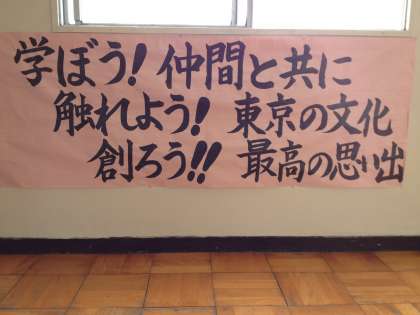 学ぼう!仲間と共に
触れよう!東京の文化
創ろう!!最高の思い出